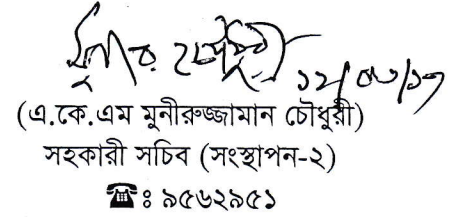 মুনীর চৌধুরী
(এ.কে.এম মুনীরুজ্জামান চৌধুরী)
সহকারী সচিব (সংস্থাপন-২)
☎ঃ ৯৫৬২৯৫১